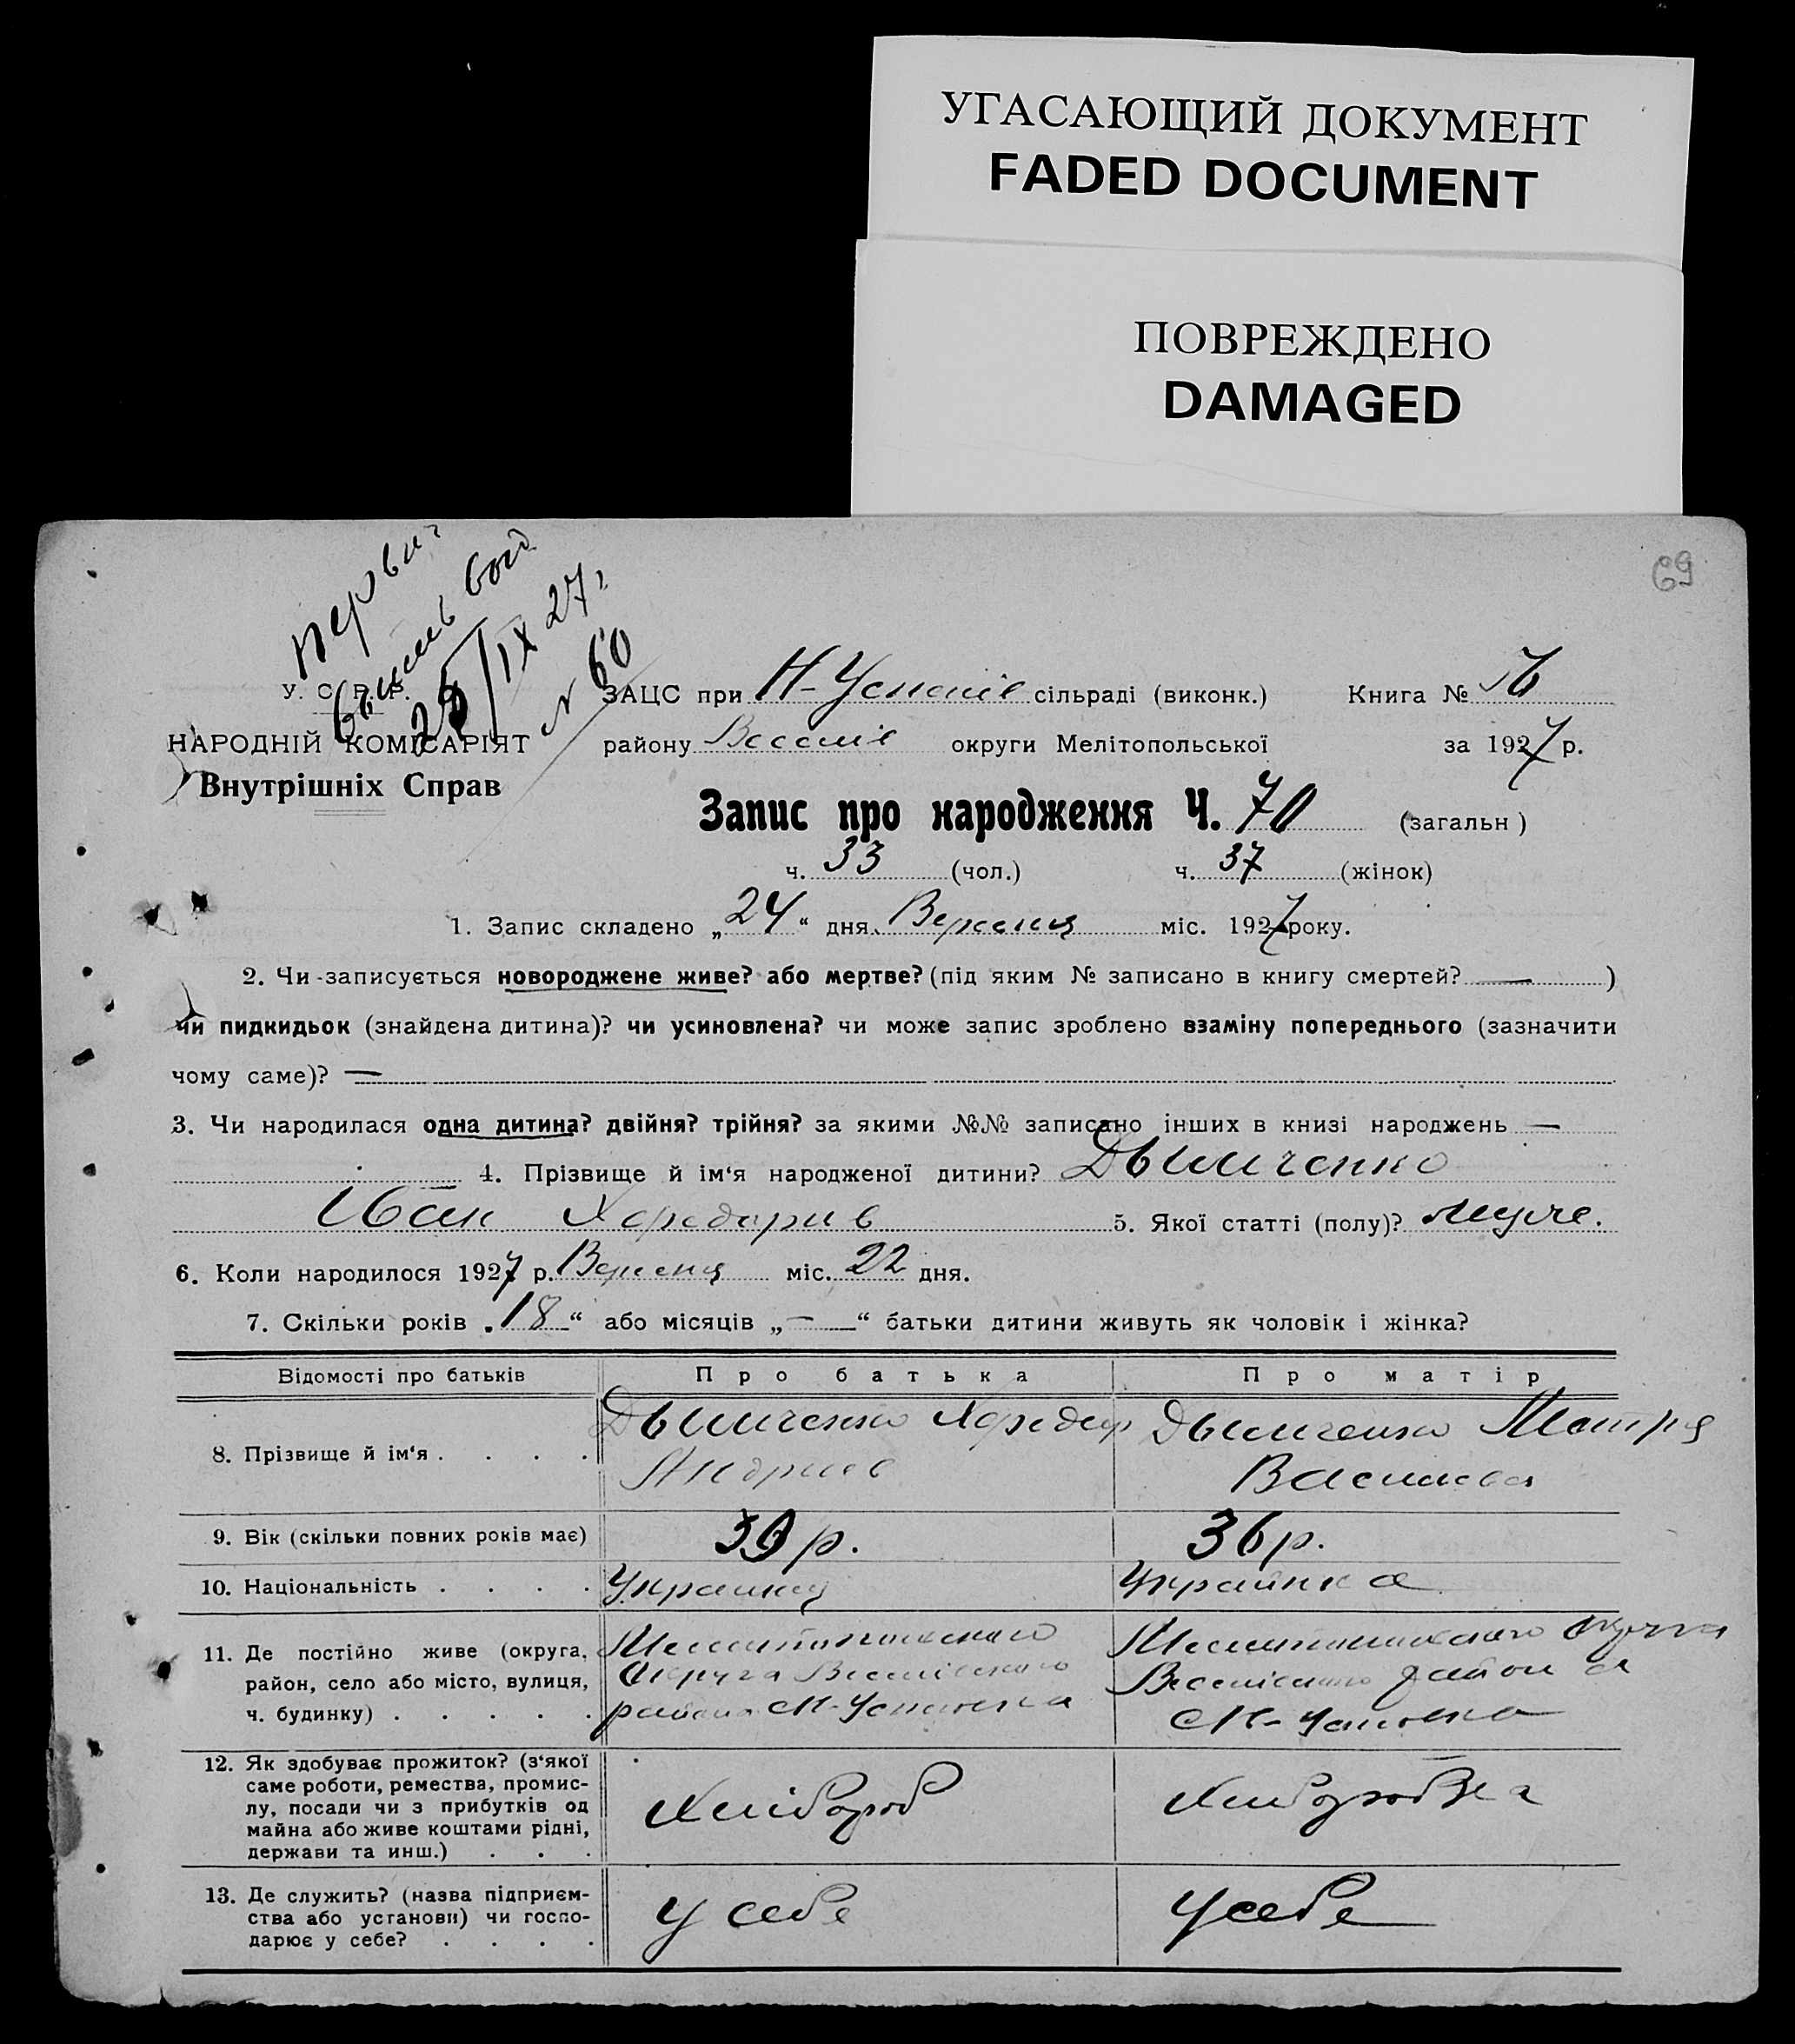 УГАСАЮЩИЙ ДОКУМЕНТ
FADED DOCUMENT
ПОВРЕЖДЕНО
DAMAGED
69
25/IX 27
N 60
У. С. Р. Р.
НАРОДНІЙ КОМІСАРІЯТ
Внутрішніх Справ
ЗАЦС при Н-Успенів сільраді (виконк.) Книга №
району Веселів округи Мелітопольської за 1927 р.
Запис про народження Ч. 70 (загальн)
ч. 33 (чол.) ч. 37 (жінок)
1. Запис складено „24“ дня Вересня міс. 1927 року.
2. Чи записується новороджене живе? або мертве? (під яким № записано в книгу смертей? — )
чи пидкидьок (знайдена дитина)? чи усиновлена? чи може запис зроблено взаміну попереднього (зазначити
чому саме)? —
3. Чи народилася одна дитина? двійня? трійня? за якими №№ записано інших в книзі народжень —
4. Прізвище й ім‘я народженої дитини? Дымченко
Іван Хфедорив 5. Якої статті (полу)? мужче.
6. Коли народилося 1927 р. Вересня міс. 22 дня.
7. Скільки років „18“ або місяців „—“ батьки дитини живуть як чоловік і жінка?
Відомості про батьків Про батька Про матір
8. Прізвище й ім‘я . . . . Дымченко Хфедор Дымченко Мотря
Андриев Василева
9. Вік (скільки повних років має) 39 р. 36 р.
10. Національність . . . . Украинец Украинка
11. Де постійно живе (округа, Мелитопольского Мелитопольского Округа
район, село або місто, вулиця, Округа Веселівского Веселівского района
ч. будинку) . . . . . района с Н-Успенка с Н-Успенка
12. Як здобуває прожиток? (з‘якої
саме роботи, ремества, промис-
лу, посади чи з прибутків од Хлібороб Хлиборобка
майна або живе коштами рідні,
держави та инш.) . . .
13. Де служить? (назва підприєм-
ства або установи) чи госпо- у себе у себе
дарює у себе? . . . .